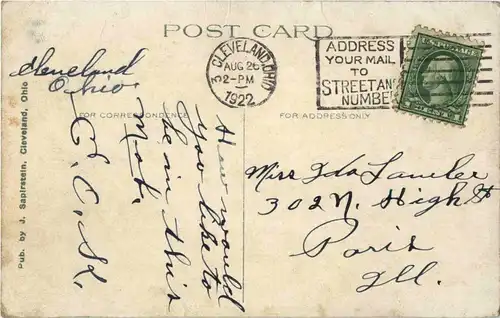 POST CARD
CLEVELAND, OHIO
AUG 26
2-PM
1922
3
ADDRESS
YOUR MAIL
TO
STREET AND
NUMBER
Cleveland
Ohio.
FOR CORRESPONDENCE
FOR ADDRESS ONLY
How would
you like to
be in this
Mob.
E. C. K.
Miss Ida Lawler
302 N. High St
Paris
Ill.
Pub. by J. Sapirstein, Cleveland, Ohio